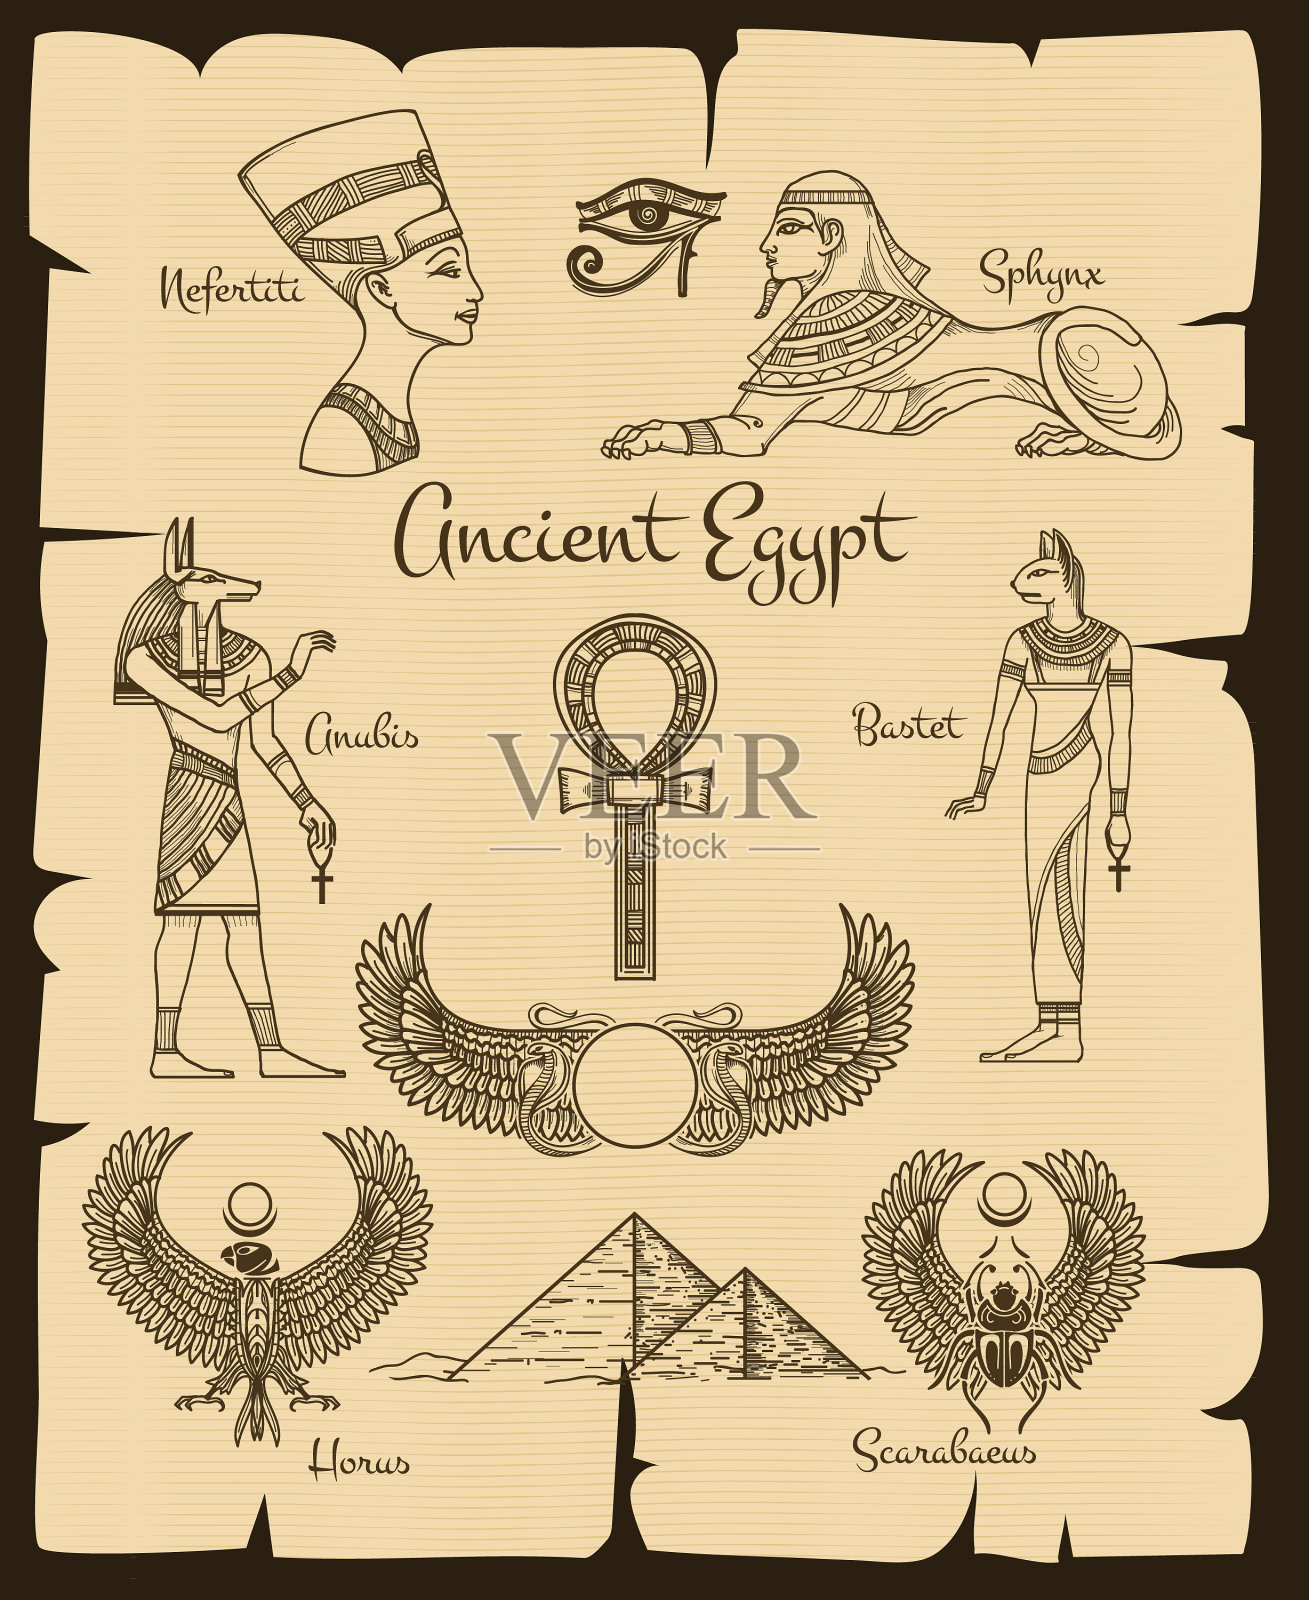 Nefertiti
Sphynx
Ancient Egypt
Anubis
Bastet
VEER
by iStock
Horus
Scarabaeus